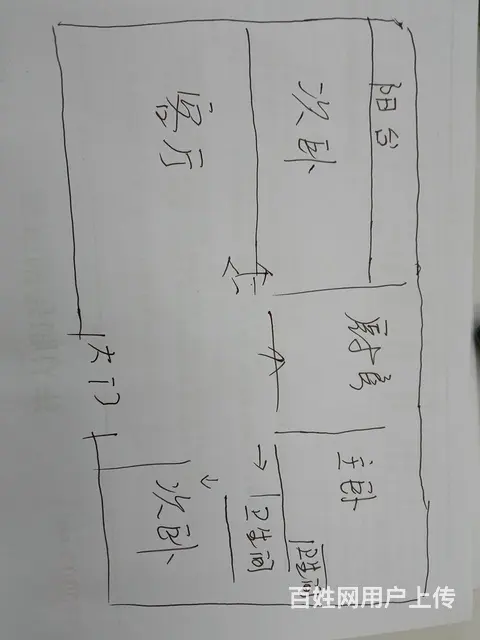 阳台
次卧
客厅
厨房
大门
主卧
次卧
卫生间
卫生间
百姓网用户上传